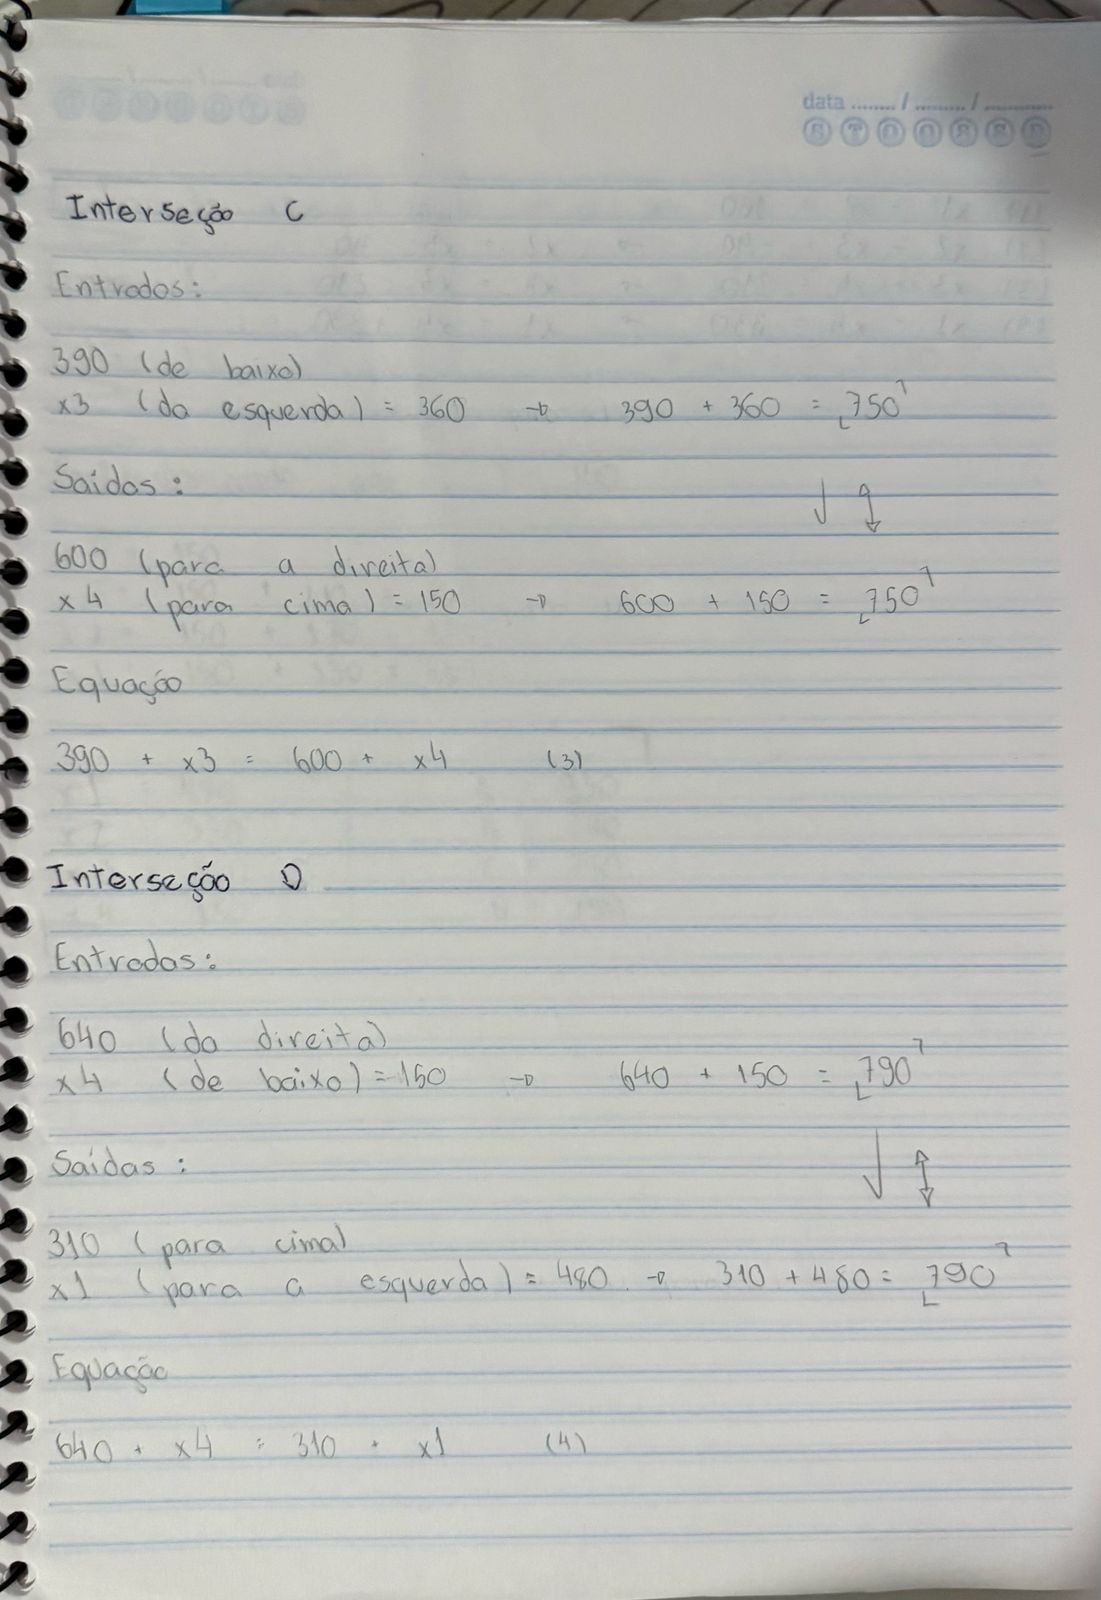 data ........ / ........ / ............
S T Q Q S S D
Interseção C
Entradas:
390 (de baixo)
x3 (da esquerda) = 360 → 390 + 360 = 750
Saídas:
600 (para a direita)
x4 (para cima) = 150 → 600 + 150 = 750
Equação
390 + x3 = 600 + x4 (3)
Interseção D
Entradas:
640 (da direita)
x4 (de baixo) = 150 → 640 + 150 = 790
Saídas:
310 (para cima)
x1 (para a esquerda) = 480 → 310 + 480 = 790
Equação
640 + x4 = 310 + x1 (4)